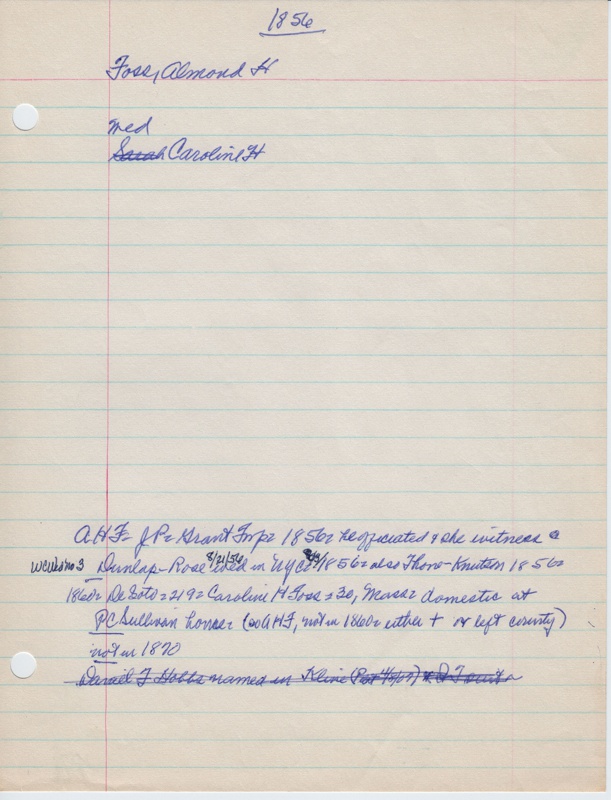 1856
Foss, Almond H
med
Sarah Caroline H
AHF= JP= Grant Twp= 1856= he officiated & she witness @
8/21/56 8/31
wcwds no 3 Dunlap-Rose wed in 1856= also Thom-Knutson 1856=
1860= DeSoto= 219= Caroline H Foss= 30, Mass= domestic at
PC Sullivan house= (so AHF, not in 1860= either + or left county)
not in 1870
Daniel F Hobbs named in Kline